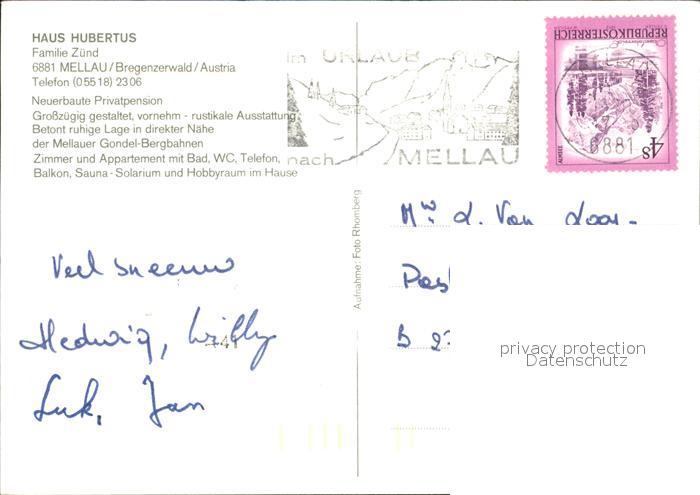 HAUS HUBERTUS
Familie Zünd
6881 MELLAU/Bregenzerwald/Austria
Telefon (05518) 2306
Neuerbaute Privatpension
Großzügig gestaltet, vornehm - rustikale Ausstattung
Betont ruhige Lage in direkter Nähe
der Mellauer Gondel-Bergbahnen
Zimmer und Appartement mit Bad, WC, Telefon,
Balkon, Sauna - Solarium und Hobbyraum im Hause
im URLAUB
nach MELLAU
REPUBLIK ÖSTERREICH
4S
ALMSEE
6881
Aufnahme: Foto Rhomberg
Veel sneeuw
Hedwig, Willy
Luk, Jan
Mw. L. Van Loor-
Pos
B 2
privacy protection
Datenschutz